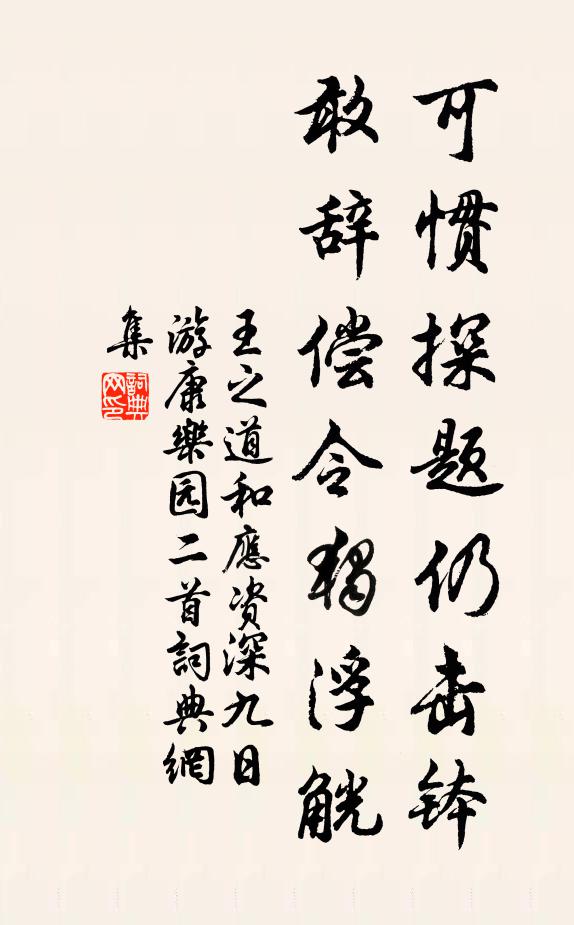 可惯探题仍击钵
敢辞偿令独浮觥
王之道和應资深九日
游康樂园二首詞典網
集
詞典網印